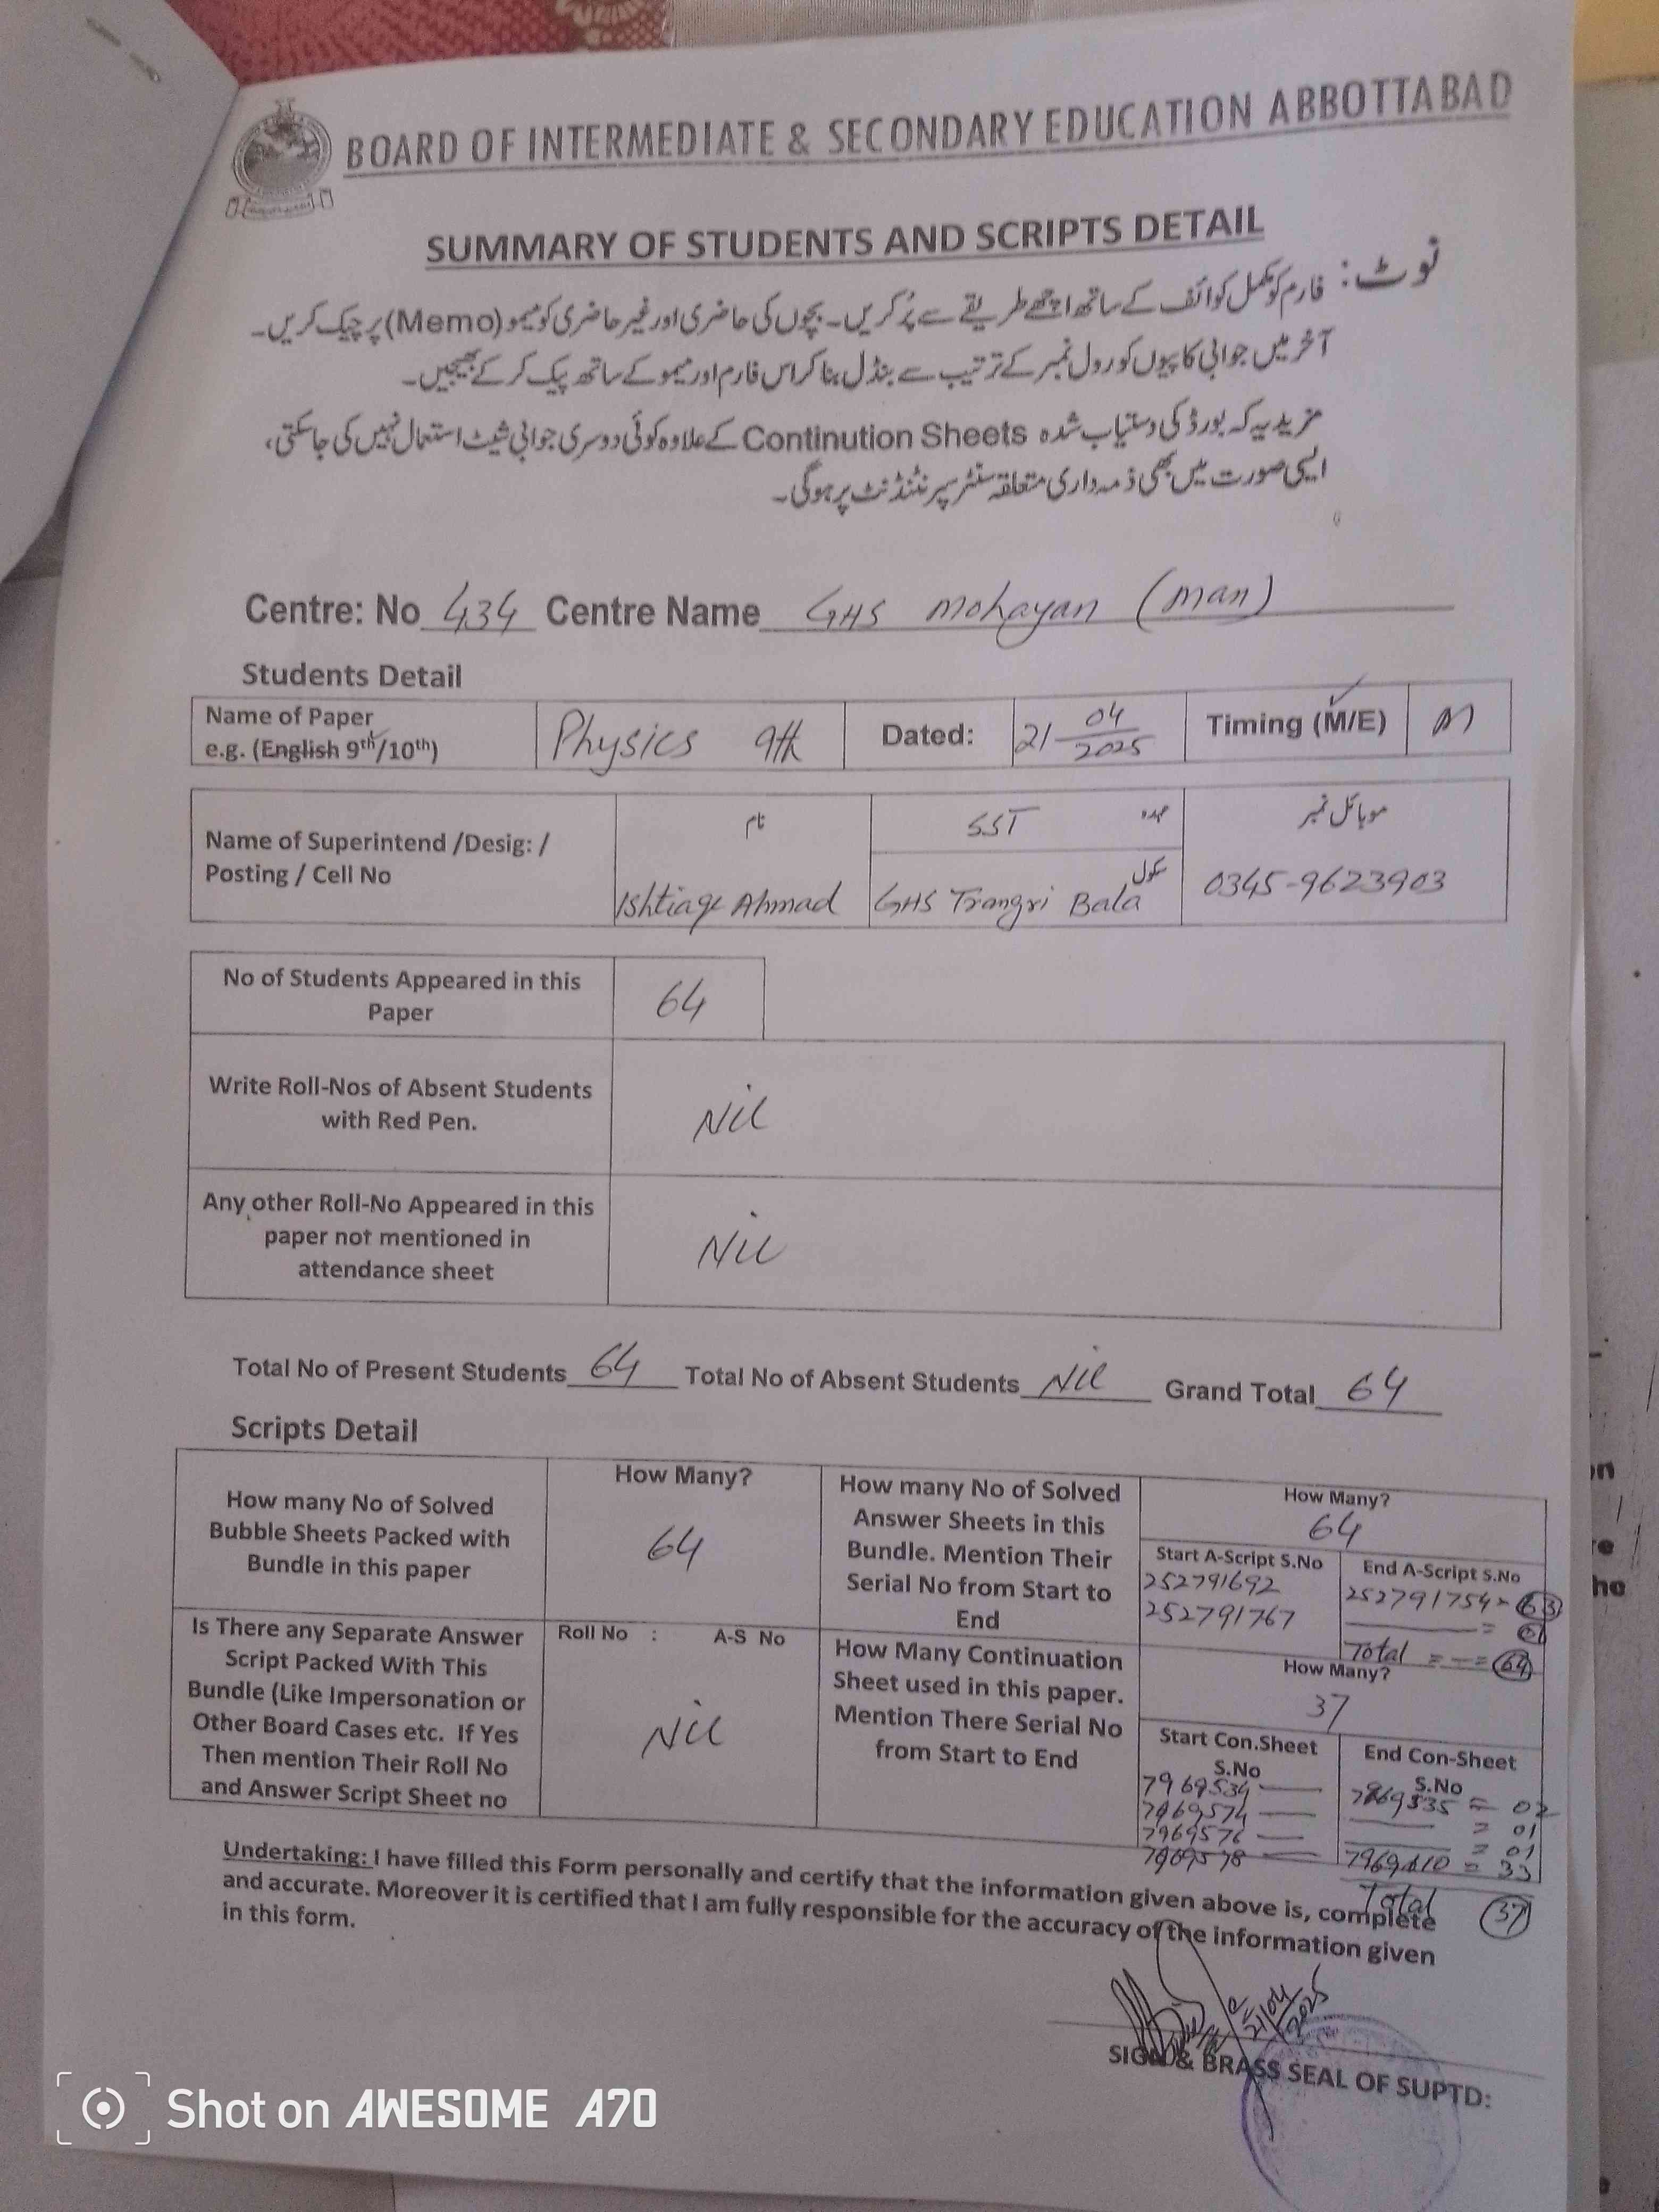 BOARD OF INTERMEDIATE & SECONDARY EDUCATION ABBOTTABAD
SUMMARY OF STUDENTS AND SCRIPTS DETAIL
نوٹ: فارم کو مکمل کوائف کے ساتھ اچھے طریقے سے پُر کریں۔ بچوں کی حاضری اور غیر حاضری کو میمو (Memo) پر چیک کریں۔
آخر میں جوابی کاپیوں کو رول نمبر کے ترتیب سے بنڈل بنا کر اس فارم اور میمو کے ساتھ پیک کر کے بھیجیں۔
مزید یہ کہ بورڈ کی دستیاب شدہ Continution Sheets کے علاوہ کوئی دوسری جوابی شیٹ استعمال نہیں کی جاسکتی،
ایسی صورت میں بھی ذمہ داری متعلقہ سنٹر سپرنٹنڈنٹ پر ہوگی۔
Centre: No 434 Centre Name GHS Mohayan (Man)
Students Detail
Name of Paper
e.g. (English 9th/10th)
Physics 9th
Dated:
21-04-2025
Timing (M/E)
M
Name of Superintend /Desig: /
Posting / Cell No
نام
Ishtiaqe Ahmad
SST عہدہ
سکول
GHS Trangri Bala
موبائل نمبر
0345-9623903
No of Students Appeared in this
Paper
64
Write Roll-Nos of Absent Students
with Red Pen.
Nil
Any other Roll-No Appeared in this
paper not mentioned in
attendance sheet
Nil
Total No of Present Students 64 Total No of Absent Students Nil Grand Total 64
Scripts Detail
How many No of Solved
Bubble Sheets Packed with
Bundle in this paper
How Many?
64
How many No of Solved
Answer Sheets in this
Bundle. Mention Their
Serial No from Start to
End
How Many?
64
Start A-Script S.No
252791692
252791767
End A-Script S.No
252791754 = 63
= 01
Total = — = 64
Is There any Separate Answer
Script Packed With This
Bundle (Like Impersonation or
Other Board Cases etc. If Yes
Then mention Their Roll No
and Answer Script Sheet no
Roll No : A-S No
Nil
How Many Continuation
Sheet used in this paper.
Mention There Serial No
from Start to End
How Many?
37
Start Con.Sheet
S.No
7969534
7969574
7969576
7969578
End Con-Sheet
S.No
7969535 = 02
= 01
= 01
7969610 = 33
Total 37
Undertaking: I have filled this Form personally and certify that the information given above is, complete
and accurate. Moreover it is certified that I am fully responsible for the accuracy of the information given
in this form.
21/04/2025
SIGN & BRASS SEAL OF SUPTD:
Shot on AWESOME A70